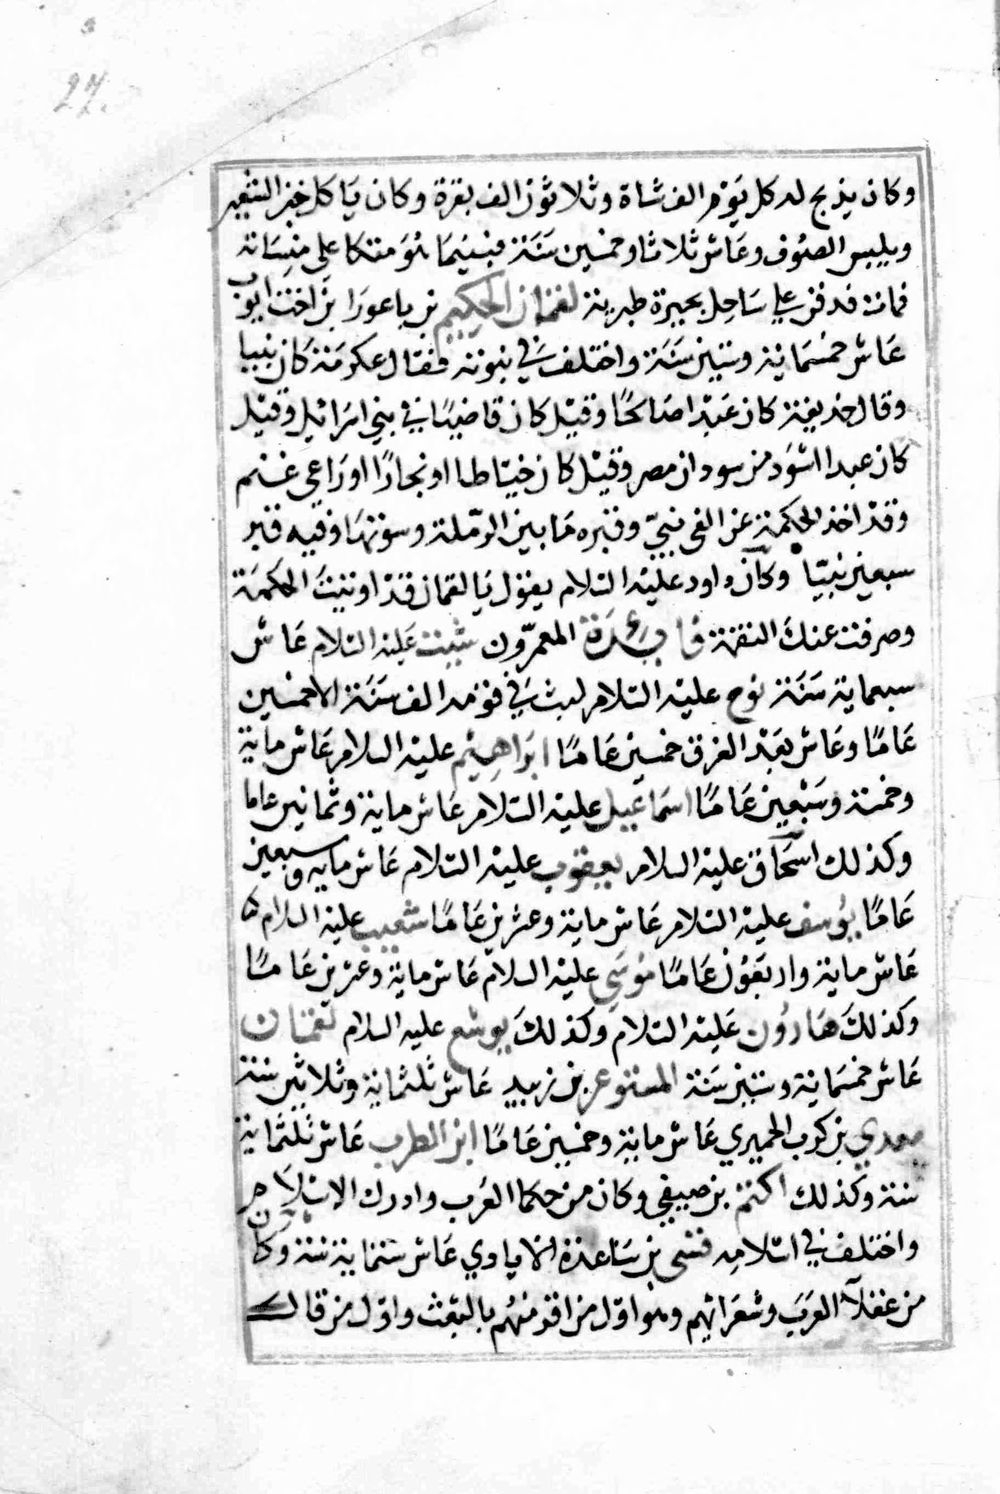 27.
وكان يذبح له كل يوم الف شاة وثلاثون الف بقرة وكان ياكل خبز الشعير
ويلبس الصوف وعاش ثلاثا وخمسين سنة فبينما هو متكا على منساته
فمات فدفن على ساحل بحيرة طبرية لقمان الحكيم بن باعورا بن اخت ايوب
عاش خمسماية وستين سنة واختلف في نبوته فقال عكرمة كان نبيا
وقال حذيفة كان عبدا صالحا وقيل كان قاضيا في بني اسرائيل وقيل
كان عبدا اسود من سودان مصر وقيل كان خياطا او نجارا او راعي غنم
وقد اخذ الحكمة عن الفي نبيّ وقبره ما بين الرملة وسوقها وفيه قبر
سبعين نبيّا وكان داود عليه السلام يقول يا لقمان قد اوتيت الحكمة
وصرفت عنك النقمة فايدة المعمرّون شيث عليه السلام عاش
سبعماية سنة نوح عليه السلام لبث في قومه الف سنة الا خمسين
عاما وعاش بعد الغرق خمسين عاما ابراهيم عليه السلام عاش ماية
وخمسة وسبعين عاما اسماعيل عليه السلام عاش ماية وثمانين عاما
وكذلك اسحاق عليه السلام يعقوب عليه السلام عاش ماية وسبعين
عاما يوسف عليه السلام عاش ماية وعشرين عاما شعيب عليه السلام
عاش ماية واربعون عاما موسى عليه السلام عاش ماية وعشرين عاما
وكذلك هارون عليه السلام وكذلك يوشع عليه السلام لقمان
عاش خمسماية وستين سنة المستوعر بن زبيد عاش ثلثماية وثلاثين سنة
معدي بن كرب الحميري عاش ماية وخمسين عاما ابن المطرب عاش ثلثماية
سنة وكذلك اكثم بن صيفي وكان من حكما العرب وادرك الاسلام
واختلف في اسلامه قس بن ساعدة الايادي عاش ستماية سنة وكان
من عقلآ العرب وشعرائهم وهو اول من اقر منهم بالبعث واول من قال